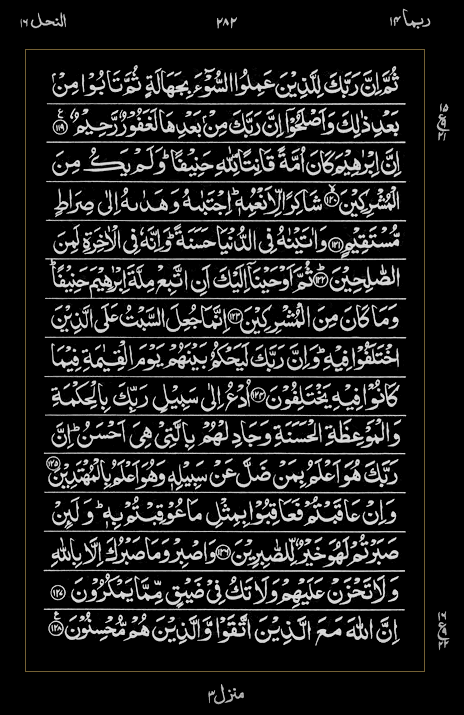 ربما ۱۴ ۲۸۲ النحل ۱۶
ثُمَّ اِنَّ رَبَّكَ لِلَّذِيْنَ عَمِلُوا السُّوْٓءَ بِجَهَالَةٍ ثُمَّ تَابُوْا مِنْۢ
بَعْدِ ذٰلِكَ وَاَصْلَحُوْٓا اِنَّ رَبَّكَ مِنْۢ بَعْدِهَا لَغَفُوْرٌ رَّحِيْمٌ ﴿۱۱۹﴾ ع
اِنَّ اِبْرٰهِيْمَ كَانَ اُمَّةً قَانِتًا لِّلّٰهِ حَنِيْفًا ؕ وَلَمْ يَكُ مِنَ
الْمُشْرِكِيْنَ ﴿۱۲۰﴾ شَاكِرًا لِّاَنْعُمِهٖ ؕ اِجْتَبٰىهُ وَهَدٰىهُ اِلٰى صِرَاطٍ
مُّسْتَقِيْمٍ ﴿۱۲۱﴾ وَاٰتَيْنٰهُ فِى الدُّنْيَا حَسَنَةً ؕ وَاِنَّهٗ فِى الْاٰخِرَةِ لَمِنَ
الصّٰلِحِيْنَ ﴿۱۲۲﴾ ثُمَّ اَوْحَيْنَاۤ اِلَيْكَ اَنِ اتَّبِعْ مِلَّةَ اِبْرٰهِيْمَ حَنِيْفًا ؕ
وَمَا كَانَ مِنَ الْمُشْرِكِيْنَ ﴿۱۲۳﴾ اِنَّمَا جُعِلَ السَّبْتُ عَلَى الَّذِيْنَ
اخْتَلَفُوْا فِيْهِ ؕ وَاِنَّ رَبَّكَ لَيَحْكُمُ بَيْنَهُمْ يَوْمَ الْقِيٰمَةِ فِيْمَا
كَانُوْا فِيْهِ يَخْتَلِفُوْنَ ﴿۱۲۴﴾ اُدْعُ اِلٰى سَبِيْلِ رَبِّكَ بِالْحِكْمَةِ
وَالْمَوْعِظَةِ الْحَسَنَةِ وَجَادِلْهُمْ بِالَّتِىْ هِىَ اَحْسَنُ ؕ اِنَّ
رَبَّكَ هُوَ اَعْلَمُ بِمَنْ ضَلَّ عَنْ سَبِيْلِهٖ وَهُوَ اَعْلَمُ بِالْمُهْتَدِيْنَ ﴿۱۲۵﴾
وَاِنْ عَاقَبْتُمْ فَعَاقِبُوْا بِمِثْلِ مَا عُوْقِبْتُمْ بِهٖ ؕ وَلَئِنْ
صَبَرْتُمْ لَهُوَ خَيْرٌ لِّلصّٰبِرِيْنَ ﴿۱۲۶﴾ وَاصْبِرْ وَمَا صَبْرُكَ اِلَّا بِاللّٰهِ
وَلَا تَحْزَنْ عَلَيْهِمْ وَلَا تَكُ فِىْ ضَيْقٍ مِّمَّا يَمْكُرُوْنَ ﴿۱۲۷﴾
اِنَّ اللّٰهَ مَعَ الَّذِيْنَ اتَّقَوْا وَّالَّذِيْنَ هُمْ مُّحْسِنُوْنَ ﴿۱۲۸﴾ ع
۱۵
ع
۲۱
۱۶
ع
۲۲
منزل ۳